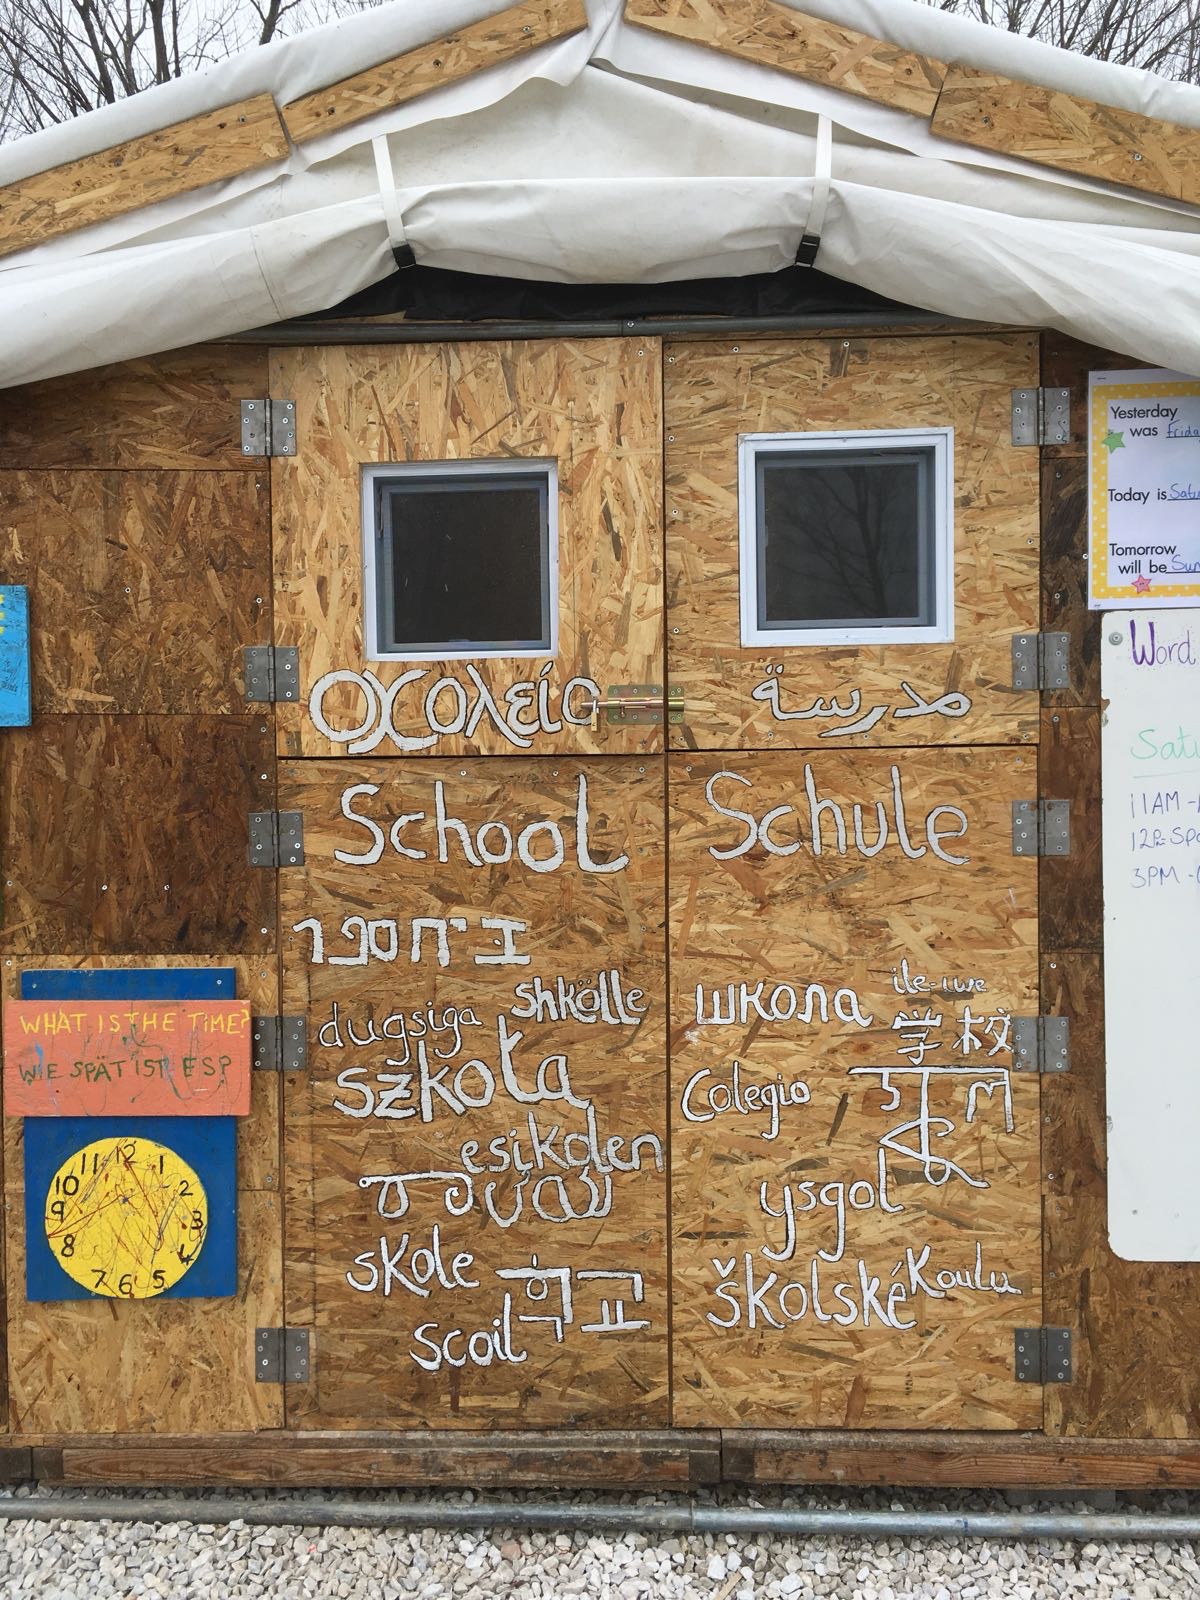 σχολείο
مدرسة
School
Schule
בית ספר
shkölle
dugsiga
szkoła
esikolen
skole
학교
scoil
школа
ile-iwe
学校
Colegio
ysgol
školské
Koulu
WHAT IS THE TIME?
WIE SPÄT IST ES?
12
11
1
10
2
9
3
8
4
7
6
5
Yesterday
was Frida
Today is Satu
Tomorrow
will be Sun
Word
Satu
11AM -
12P- Spo
3PM -